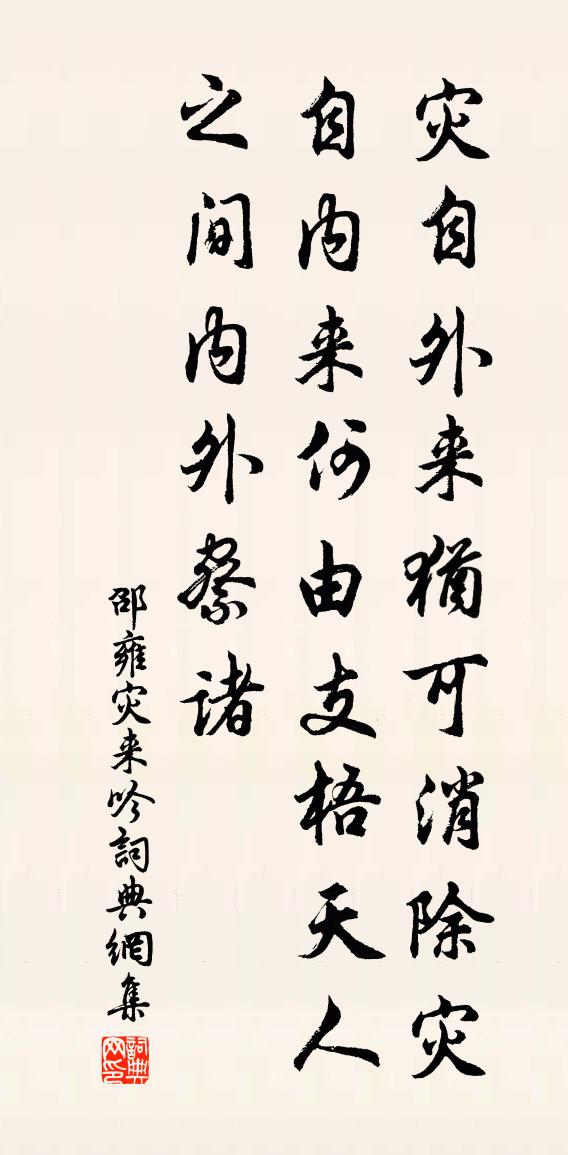 灾自外来犹可消除灾
自内来何由支梧天人
之间内外察诸
邵雍灾来吟詞典網集
詞典网印